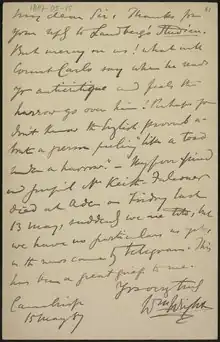 1887-05-15
61
My dear Sir, Thanks for
your apf. to Landbergs Studien.
But mercy on us! what will
Count Carlo say when he reads
yr anticritique and feels the
harrow go over him! Perhaps you
don't know the English proverb a-
bout a person feeling "like a toad
under a harrow." – My poor friend
and pupil Mr Keith Falconer
died at Aden on Friday last
13 May, suddenly we are told, but
we have no particulars as yet,
as the news came by telegram. This
has been a great grief to me.
Yrs very truly
Wm Wright
Cambridge
15 May 87